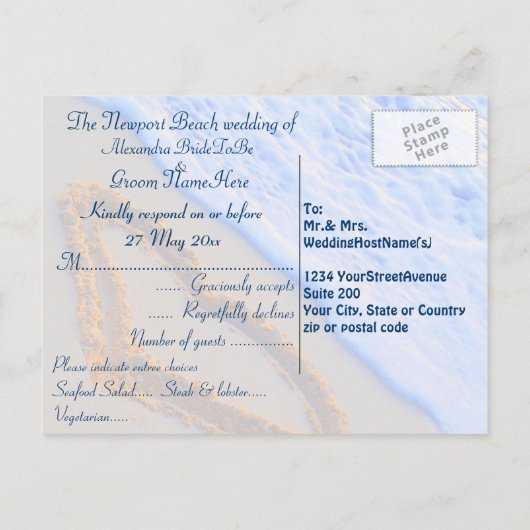 The Newport Beach wedding of
Alexandra BrideToBe
&
Groom NameHere
Kindly respond on or before
27 May 20xx
M.......................................
...... Graciously accepts
...... Regretfully declines
Number of guests ................
Please indicate entree choices
Seafood Salad..... Steak & lobster.....
Vegetarian.....
Place
Stamp
Here
To:
Mr.& Mrs.
WeddingHostName(s)
1234 YourStreetAvenue
Suite 200
Your City, State or Country
zip or postal code